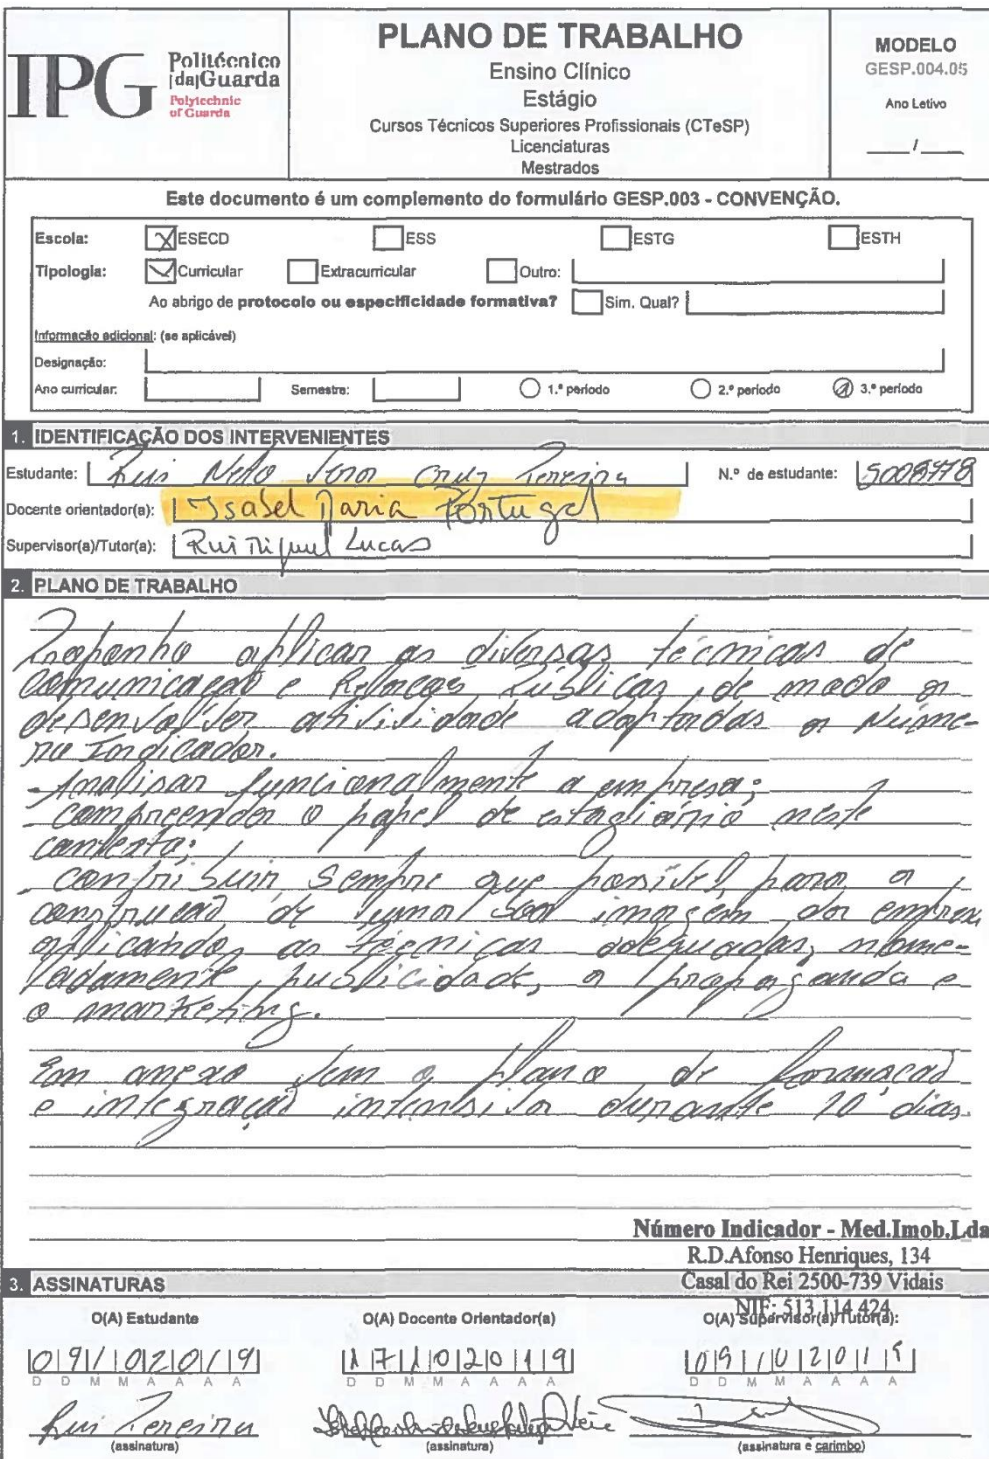 IPG Politécnico |da|Guarda Polytechnic of Guarda
PLANO DE TRABALHO
Ensino Clínico
Estágio
Cursos Técnicos Superiores Profissionais (CTeSP)
Licenciaturas
Mestrados
MODELO
GESP.004.05
Ano Letivo
___/___
Este documento é um complemento do formulário GESP.003 - CONVENÇÃO.
Escola: ESECD ESS ESTG ESTH
Tipologia: Curricular Extracurricular Outro:
Ao abrigo de protocolo ou especificidade formativa? Sim. Qual?
Informação adicional: (se aplicável)
Designação:
Ano curricular: Semestre: 1.º período 2.º período 3.º período
1. IDENTIFICAÇÃO DOS INTERVENIENTES
Estudante: Rui Cruz Pereira N.º de estudante: 5008778
Docente orientador(a): Isabel Maria Portugal
Supervisor(a)/Tutor(a): Rui Miguel Lucas
2. PLANO DE TRABALHO
aplicar as diversas técnicas de
Comunicação e Relações Públicas, de modo a
desenvolver atividade adaptadas a Núme-
ro Indicador.
- Analisar funcionalmente a empresa;
- compreender o papel de estagiário neste
contexto;
- contribuir sempre que possível, para a
construção de uma boa imagem da empresa
aplicando, as técnicas adequadas, nome-
adamente, publicidade, a propaganda e
o marketing.
Em anexo vem o plano de formação
e integração intensiva durante 10 dias.
Número Indicador - Med.Imob.Lda
R.D.Afonso Henriques, 134
Casal do Rei 2500-739 Vidais
NIF: 513 114 424
3. ASSINATURAS
O(A) Estudante O(A) Docente Orientador(a) O(A) Supervisor(a)/Tutor(a):
09/102019 17102019 09102019
D D M M A A A A D D M M A A A A D D M M A A A A
Rui Pereira
(assinatura) (assinatura) (assinatura e carimbo)